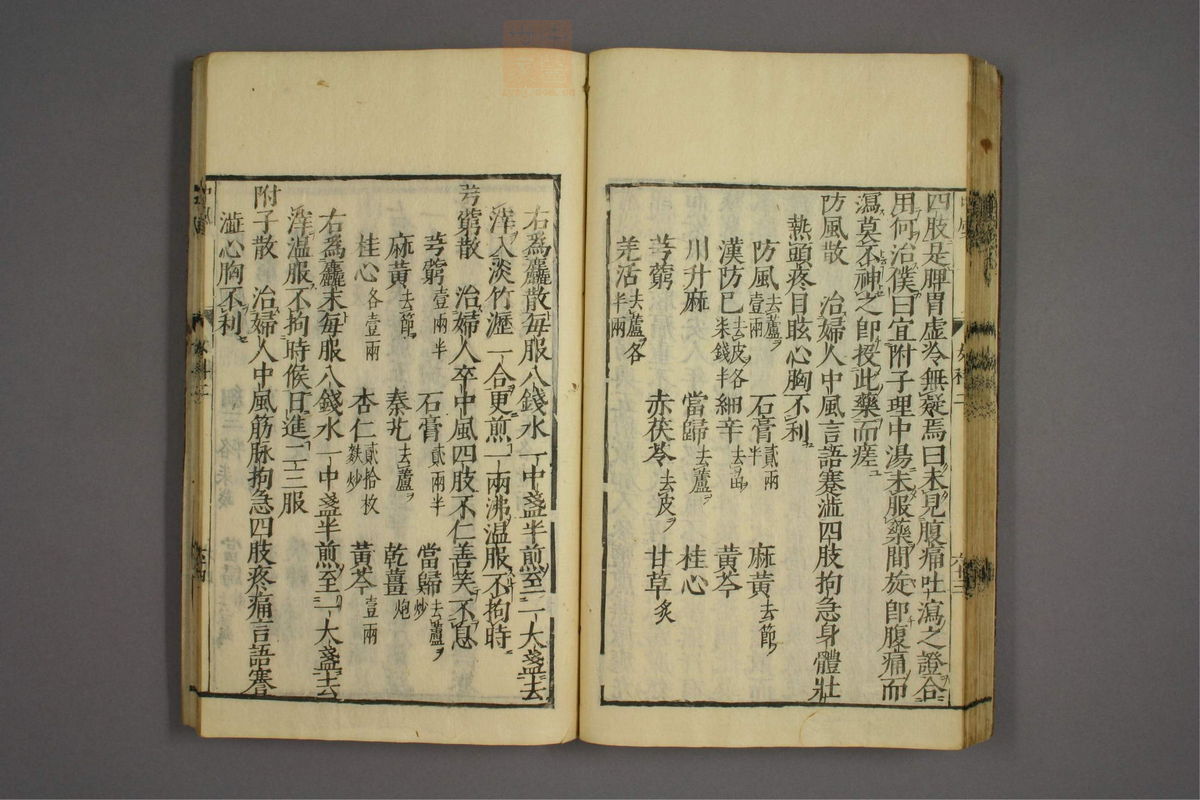 四肢是脾胃虛冷無疑焉曰未見腹痛吐瀉之證合
用何治僕曰宜附子理中湯未服藥間旋卽腹痛而
瀉莫不神之卽投此藥而瘥
防風散 治婦人中風言語蹇澁四肢拘急身體壯
熱頭疼目眩心胸不利
防風去蘆壹兩 石膏貳兩半 麻黃去節
漢防已去皮各柒錢半 細辛去苗 黃芩
川升麻 當歸去蘆 桂心
芎藭 赤茯苓去皮 甘草炙
羌活去蘆各半兩
右爲麤散每服八錢水一中盞半煎至一大盞去
滓入淡竹瀝一合更煎一兩沸溫服不拘時
芎藭散 治婦人卒中風四肢不仁善笑不息
芎藭壹兩半 石膏貳兩半 當歸去蘆炒
麻黃去節 秦艽去蘆 乾薑炮
桂心各壹兩 杏仁貳拾枚麩炒 黃芩壹兩
右爲麤末每服八錢水一中盞半煎至一大盞去
滓溫服不拘時候日進二三服
附子散 治婦人中風筋脉拘急四肢疼痛言語蹇
澁心胸不利